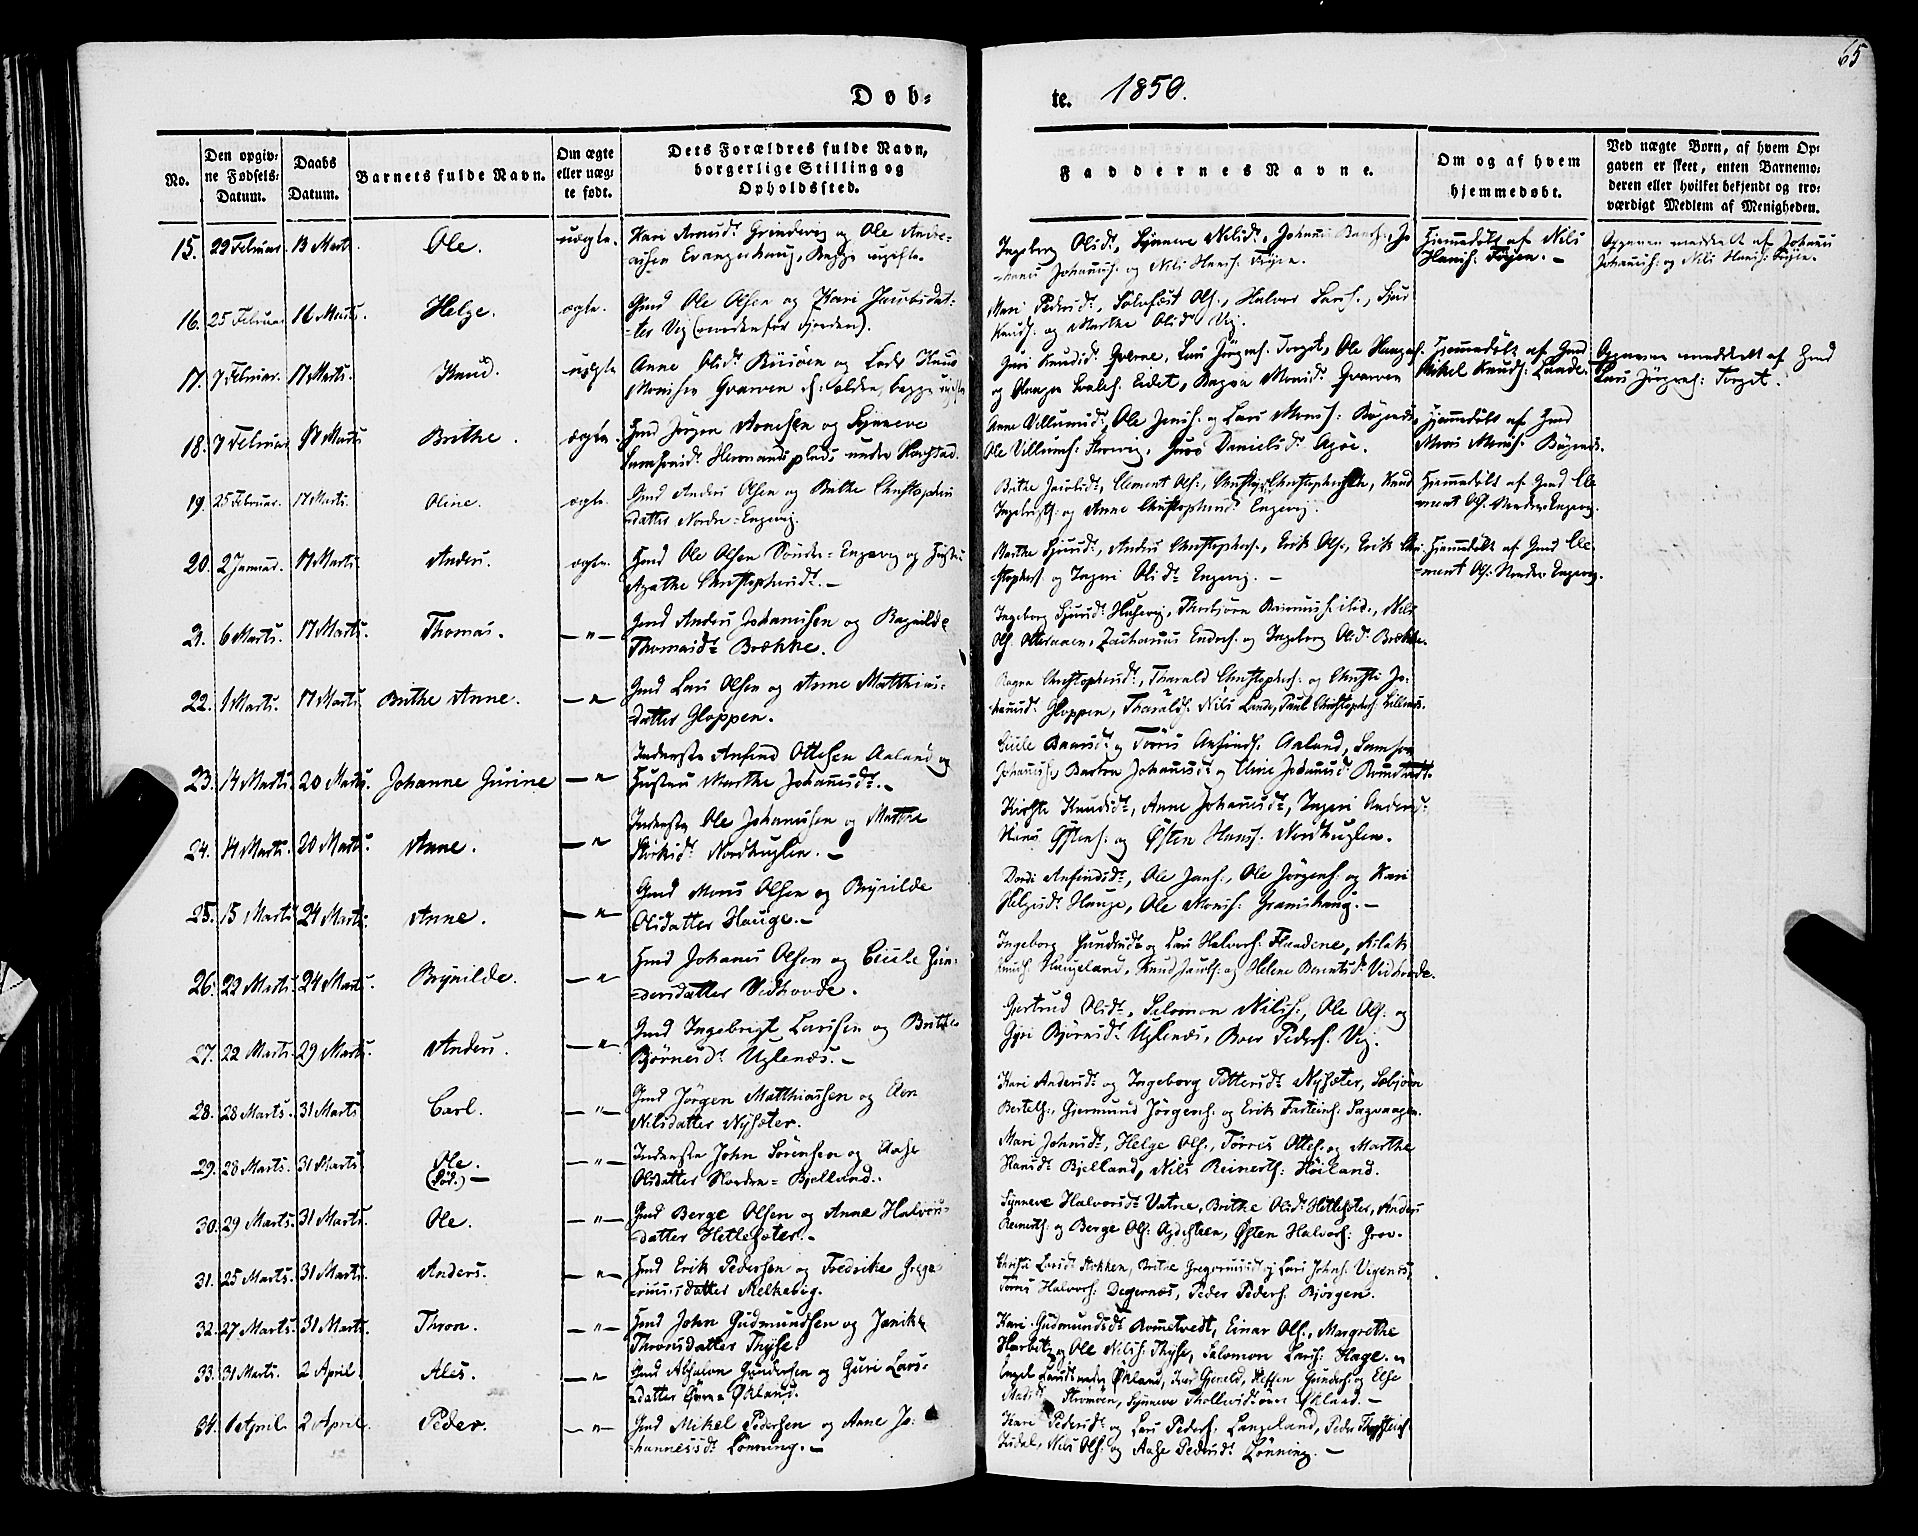 65
Døb-
te. 1850.
No.
Den opgiv-
ne Fødsels-
Datum.
Daabs
Datum.
Barnets fulde Navn.
Om ægte
eller uæg-
te født.
Dets Forældres fulde Navn,
borgerlige Stilling og
Opholdssted.
Faddernes Navne.
Om og af hvem
hjemmedøbt.
Ved uægte Børn, af hvem Op-
gaven er skeet, enten Barnemo-
deren eller hvilket bekjendt og tro-
værdigt Medlem af Menigheden.
15. 22 Februar. 13 Marts. Ole. uægte. Kari Arnesdt. og Ole
Ingeborg Olsdt., Synneve Nilsdt., Johannes
Hjemmedøbt af Nils
Opgaven meddelt af Johannes
Hansf. Føjen. —
Johannesf. og Nils Hansf. Føjen.
Johannesf. og Nils Hansf. Føjen.
16. 25 Februar. 16 Marts. Helge. ægte. Gmd Ole Olsen og Kari Jacobsdat-
ter Vig (norden for fjorden).
Mari Pedersdt., Solvfæst Olsf., Halvor Larsf., Sjur
Knudsf. og Marthe Olsdt. Vig.
17. 7 Februar. 17 Marts. Knud. uægte Anne Olsdt. og Knud
Monssen
Guri Knudsdt. Lars Jørgensf. Torget, Ole
og Eidet, Ragna Monsdt.
Hjemmedøbt af Gmd
Mikel Knudsf. Lunde.
Opgaven meddelt af Gmd
Lars Jørgensf. Torget.
18. 7 Februar. 17 Marts Brithe. ægte. Hmd Jørgen Arnesen og Synneve
Samsonsdt. Hermandsplads under
Anne Villumsdt., Ole Jensf. og Lars Monsf.
Ole Villumsf. Danielsdt.
Hjemmedøbt af Gmd
Mons Monsf.
19. 25 Februar. 17 Marts. Oline. ægte. Gmd Anders Olsen og Brithe Christophers
datter Nordre-Engevig.
Brithe Jacobsdt., Clement Olsf., Christophersen, Knud
Ingebrigtsf. og Anne Christophersdt. Engevig.
Hjemmedøbt af Gmd Cle-
ment Olsf. Nordre Engevig.
20. 2 Januar. 17 Marts. Anders. ægte. Hmd Ole Olsen Søndre-Engevig og Hustru
Agathe Christophersdt. —
Marthe Sjursdt., Anders Christophersf., Erik Olsf., Erik Chri-
stophersf. og Ingeri Olsdt. Engevig. —
Hjemmedøbt af Gmd Cle-
ment Olsf. Nordre Engevig.
21. 6 Marts. 17 Marts. Thomas. — " — Gmd Anders Johannesen og Ragnilde
Thomasdt. Brække.
Ingeborg Sjursdt. Husevig, Thorbjørn Rasmusf. ibid., Nils
Olsf. Otteraaen, Zacharias Endresf. og Ingeborg Olsdt. Brække.
22. 1 Marts. 17 Marts. Brithe Anne. — " Gmd Lars Olsen og Anne Matthias-
datter Gloppen.
Ragna Christophersdt., Tharald Christophersf. og Christi Jo-
hannesdt. Gloppen, Tharaldsf. Nils Lunde, Paul Christophersf.
23. 14 Marts. 20 Marts. Johanne Gurine — " Inderste Anfind Ottesen Aaland og
Hustru Marthe Johannesdt. —
Cicele Hansdt. og Tørres Anfindsf. Aaland, Samson
Johannesf., Barbra Johannesdt. og Eline Johannesdt.
24. 14 Marts. 20 Marts. Anne. — " Inderste Ole Johannesen og Marthe
Nordhuglen. —
Kirsti Knudsdt., Anne Johannesdt., Ingeri Andersdt.
Hans Østensf. og Østen Hansf. Nordhuglen.
25. 15 Marts 24 Marts. Anne. — " Gmd Mons Olsen og Brynilde
Olsdatter Hauge. —
Dordi Anfindsdt., Ole Jansf., Ole Jørgensf. og Kari
Helgesdt. Hauge, Ole Monsf. —
26. 22 Marts. 24 Marts. Brynilde. — " Hmd Johannes Olsen og Cicele Gun-
dersdatter Vidhovde.
Ingeborg Gundersdt. og Lars Halvorsf. Flaadene, Aslak
Haugeland, Knud Jacobsf. og Helene Berentsdt. Vidhovde.
27. 22 Marts. 29 Marts. Anders. — " Gmd Ingebrigt Larssen og Brithe
Bjørnesdt. Uglenæs. —
Gjertrud Olsdt., Salomon Nilsf., Ole Olsf. og
Gyri Bjørnesdt. Uglenæs, Boer Pedersf. Vig.
28. 28 Marts. 31 Marts Carl. — " — Gmd Jørgen Matthiassen og
Nilsdatter Nysæter.
Kari Andersdt. og Ingeborg Pettersdt. Nysæter, Sæbjørn
Bertelsf., Gjermund Jørgensf. og Erik Farteinsf. Sagvaagen.
29. 28 Marts. 31 Marts. Ole. — " — Inderste John Sørensen og Aase
(død.) —
Olsdatter Nordre-Bjelland.
Mari Johnsdt., Helge Olsf., Tørres Ottesf. og Marthe
Hansdt. Bjelland, Nils Reinertsf. Høiland.
30. 29 Marts. 31 Marts. Ole. — " — Gmd Berge Olsen og Anne Halvors-
datter Hetlesæter. —
Synneve Halvorsdt. Vatne, Brithe Olsdt. Hetlesæter, Anders
Reinertsf. og Berge Olsf. Agdesteen, Østen Halvorsf. Grov.
31. 25 Marts. 31 Marts. Anders. — " Hmd Erik Pedersen og Fredrike Grego-
riusdatter Melkevig.
Christi Larsdt. Stokken, Brithe Gregoriusdt. og Lars Johnsf. Vigenes,
Tørres Halvorsf. Degernæs, Peder Pedersf. Bjørgen.
32. 27 Marts. 31 Marts. Thron. — " — Hmd John Gudmundsen og Janike
Thronsdatter Thyse.
Kari Gudmundsdt. Rometvedt, Einar Olsf., Margrethe
Harbitz og Ole Nilsf. Thyse, Salomon Larsf. Hage.
33. 31 Marts. 2 April. Ales. — " Gmd Absalon Gundersen og Guri Lars-
datter Øvre Økland.
Engel Larsdt. nedre Økland, Steffen Gundersf. og Else
Madsdt. Strømøen, Synneve Thollevsdt. øvre Økland. —
34. 1 April 2 April. Peder. — " — Gmd Mikel Pedersen og Anne Jo-
hannesdt. Lønning. —
Kari Pedersdt. og Lars Pedersf. Langeland, Peder
Nils Olsf. og Aase Pedersdt. Lønning. —